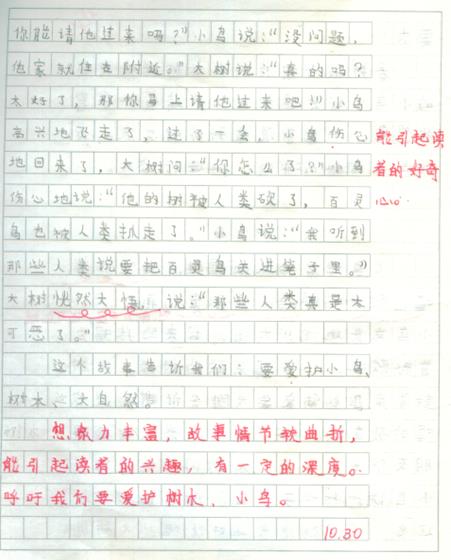 你能请他过来吗?”小鸟说:“没问题,
他家就住在附近。”大树说:“真的吗?
太好了,那你马上请他过来吧!”小鸟
高兴地飞走了,过了一会,小鸟伤心
地回来了,大树问:“你怎么了?”小鸟
伤心地说:“他的树被人类砍了,百灵
鸟也被人类抓走了。”小鸟说:“我听到
那些人类说要把百灵鸟关进笼子里。”
大树恍然大悟,说:“那些人类真是太
可恶了。”
这个故事告诉我们:要爱护小鸟、
树木、大自然。
能引起读
者的好奇
心。
想象力丰富,故事情节较曲折,
能引起读者的兴趣,有一定的深度。
呼吁我们要爱护树木、小鸟。
10.30